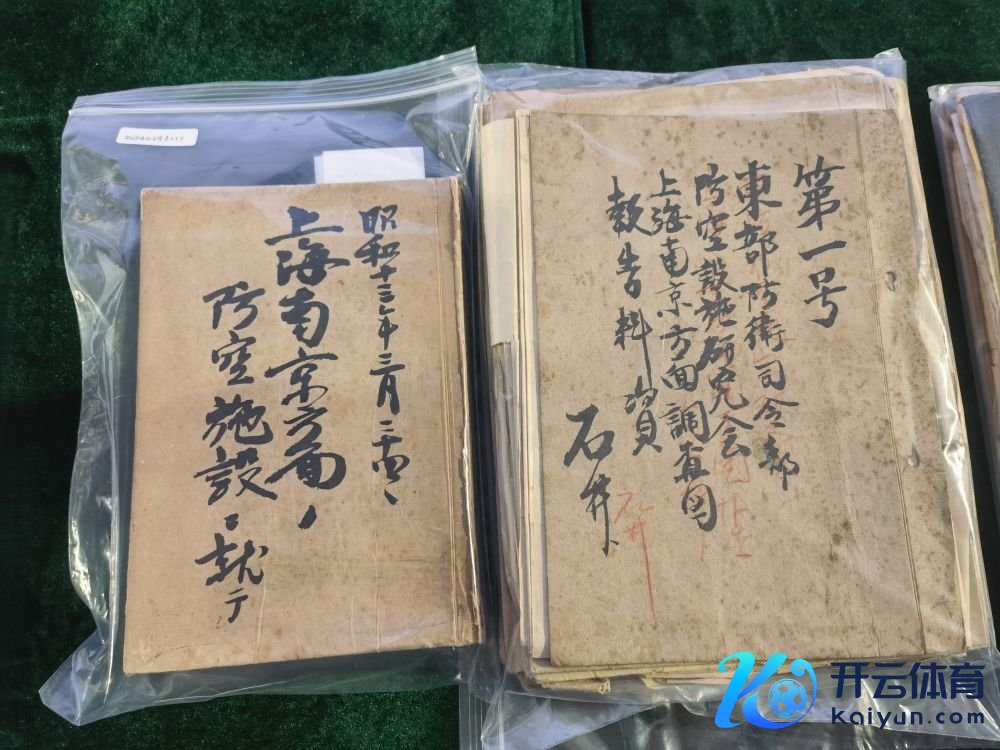 昭和十三年三月
上海南京方面ノ
防空施設ニ就テ
第一号
東部防衛司令部
防空設施研究会
上海南京方面調査団
報告料資
石井
石井
开云体育
kaiyun.com